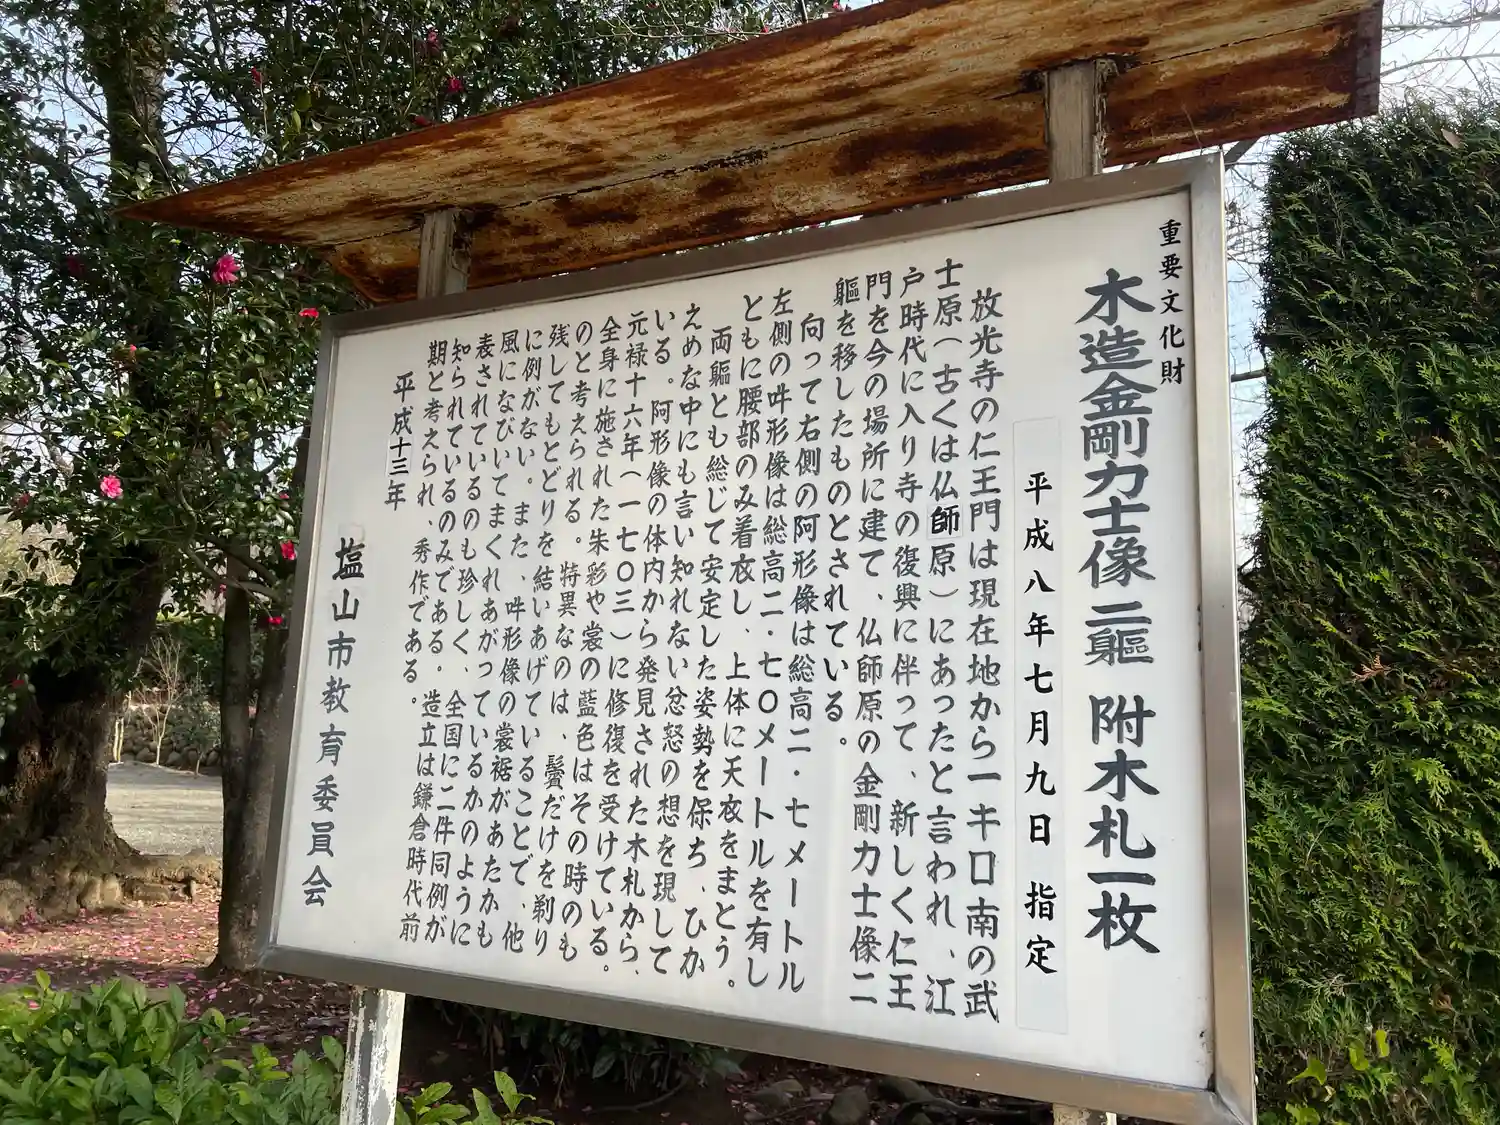 重要文化財
木造金剛力士像 二軀 附木札一枚
平成八年七月九日 指定
放光寺の仁王門は現在地から一キロ南の武
士原（古くは仏師原）にあったと言われ、江
戸時代に入り寺の復興に伴って、新しく仁王
門を今の場所に建て、仏師原の金剛力士像二
軀を移したものとされている。
向って右側の阿形像は総高二・七メートル
左側の吽形像は総高二・七〇メートルを有し
ともに腰部のみ着衣し、上体に天衣をまとう。
両軀とも総じて安定した姿勢を保ち、ひか
えめな中にも言い知れない忿怒の想を現して
いる。阿形像の体内から発見された木札から、
元禄十六年（一七〇三）に修復を受けている。
全身に施された朱彩や裳の藍色はその時のも
のと考えられる。特異なのは、鬢だけを剃り
残してもとどりを結いあげていることで、他
に例がない。また、吽形像の裳裾があたかも
風になびいてまくれあがっているかのように
表されているのも珍しく、全国に二件同例が
知られているのみである。造立は鎌倉時代前
期と考えられ、秀作である。
平成十三年
塩山市教育委員会